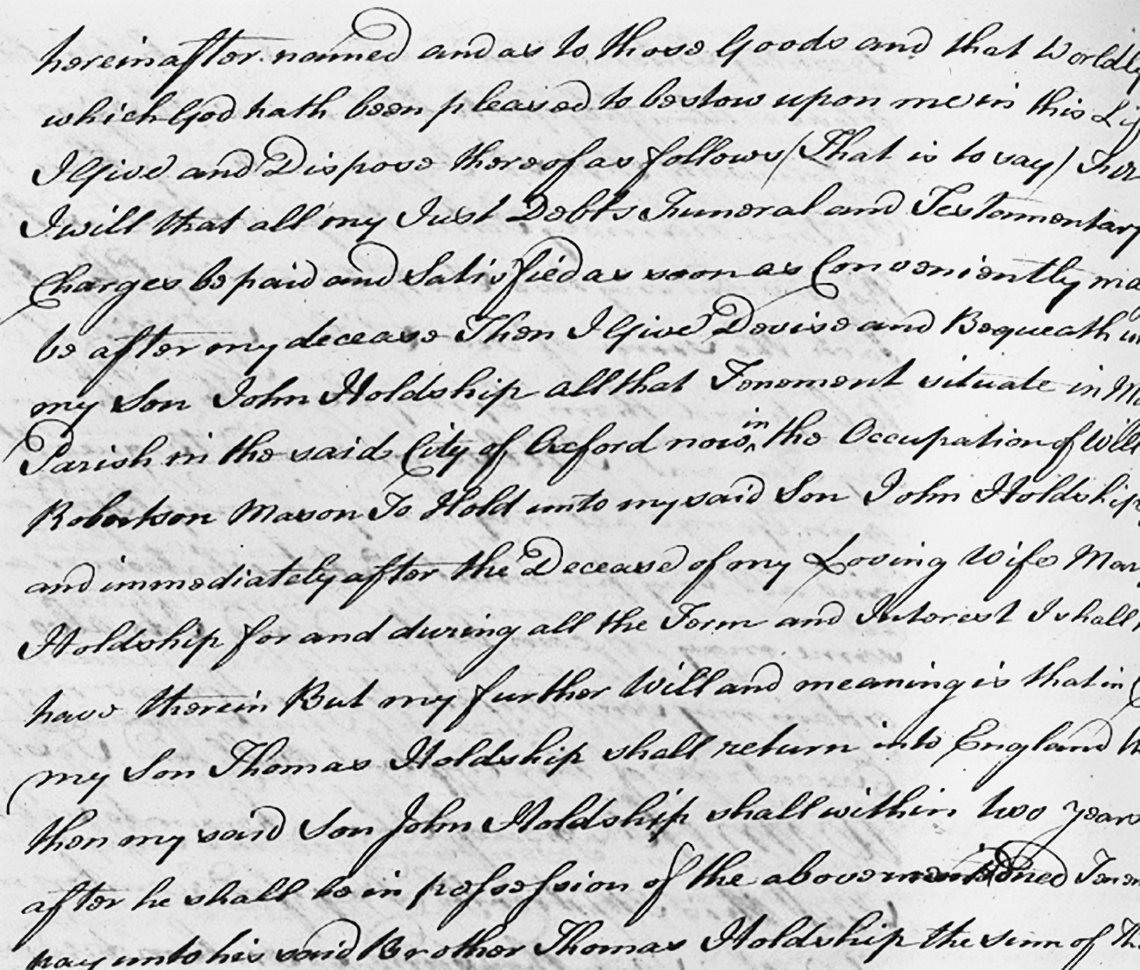 hereinafter named and as to those Goods and that Worldly
which God hath been pleased to bestow upon me in this
I Give and Dispose thereof as follows (That is to say)
I will that all my Just Debts Funeral and Testamentary
Charges be paid and Satisfied as soon as Conveniently ma
be after my decease Then I Give Devise and Bequeath
my Son John Holdship all that Tenement situate in
Parish in the said City of Oxford now in the Occupation of Will
Robertson Mason To Hold unto my said Son John Holdship
and immediately after the Decease of my Loving Wife Mar
Holdship for and during all the Term and Interest I shall
have therein But my further Will and meaning is that in
my Son Thomas Holdship shall return into England
then my said Son John Holdship shall within two years
after he shall be in possession of the abovementioned Tenem
pay unto his said Brother Thomas Holdship the sum of